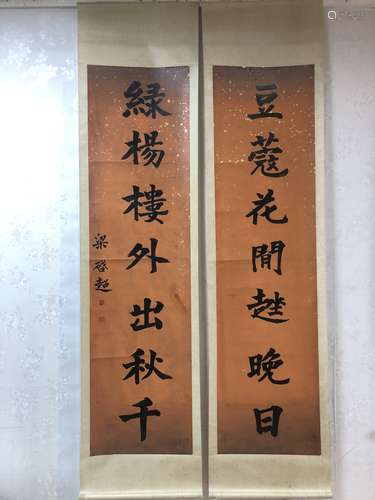 豆蔻花閒趖晚日
緑楊樓外出秋千
梁啓超